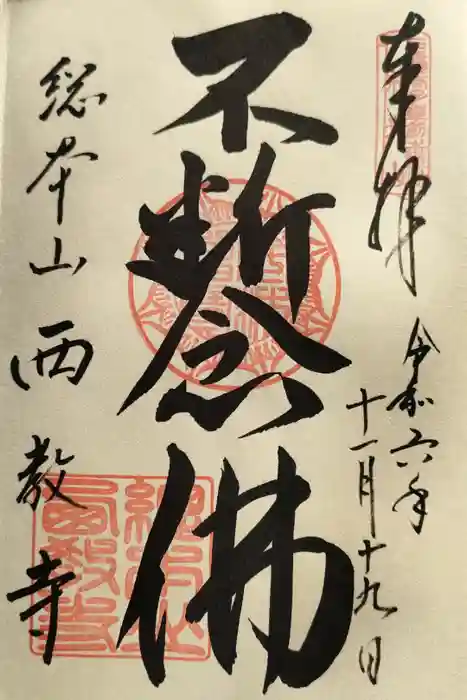 奉拝
令和六年
十一月十九日
不断念佛
総本山 西教寺